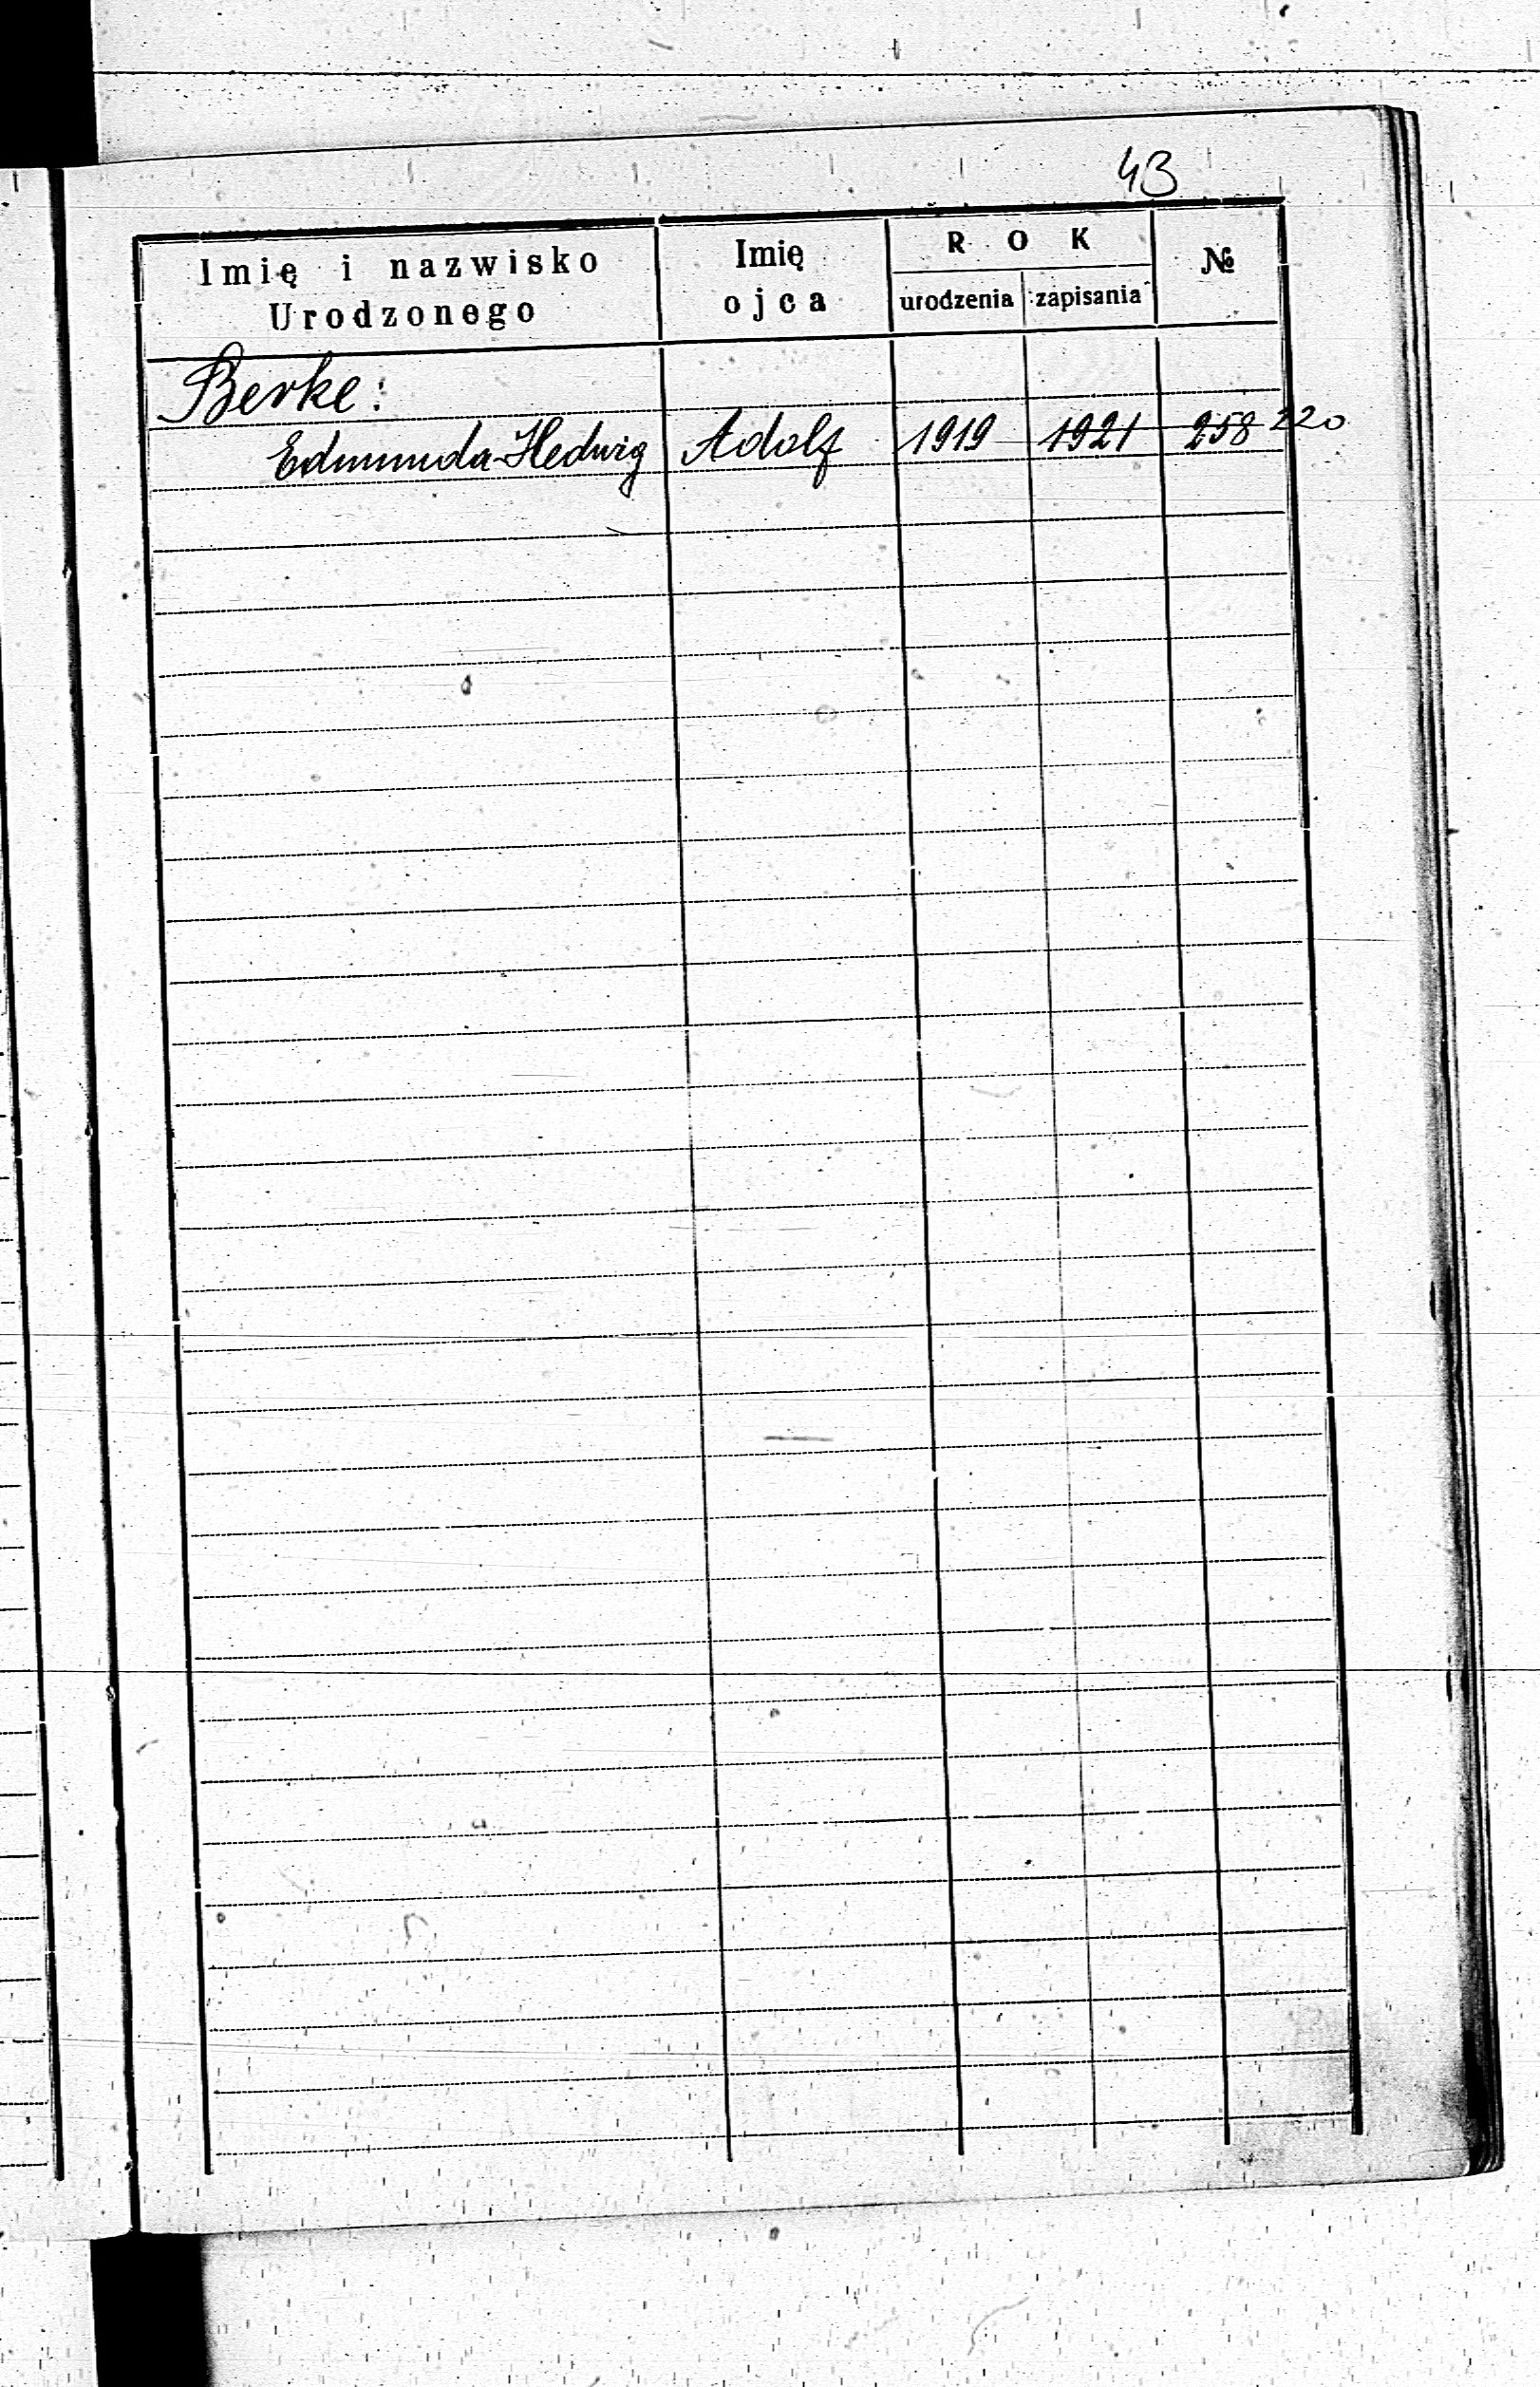 43
Imię i nazwisko Urodzonego
Imię ojca
ROK
urodzenia zapisania
№
Berke:
Edmunda-Hedwig Adolf 1919 1921 258 220